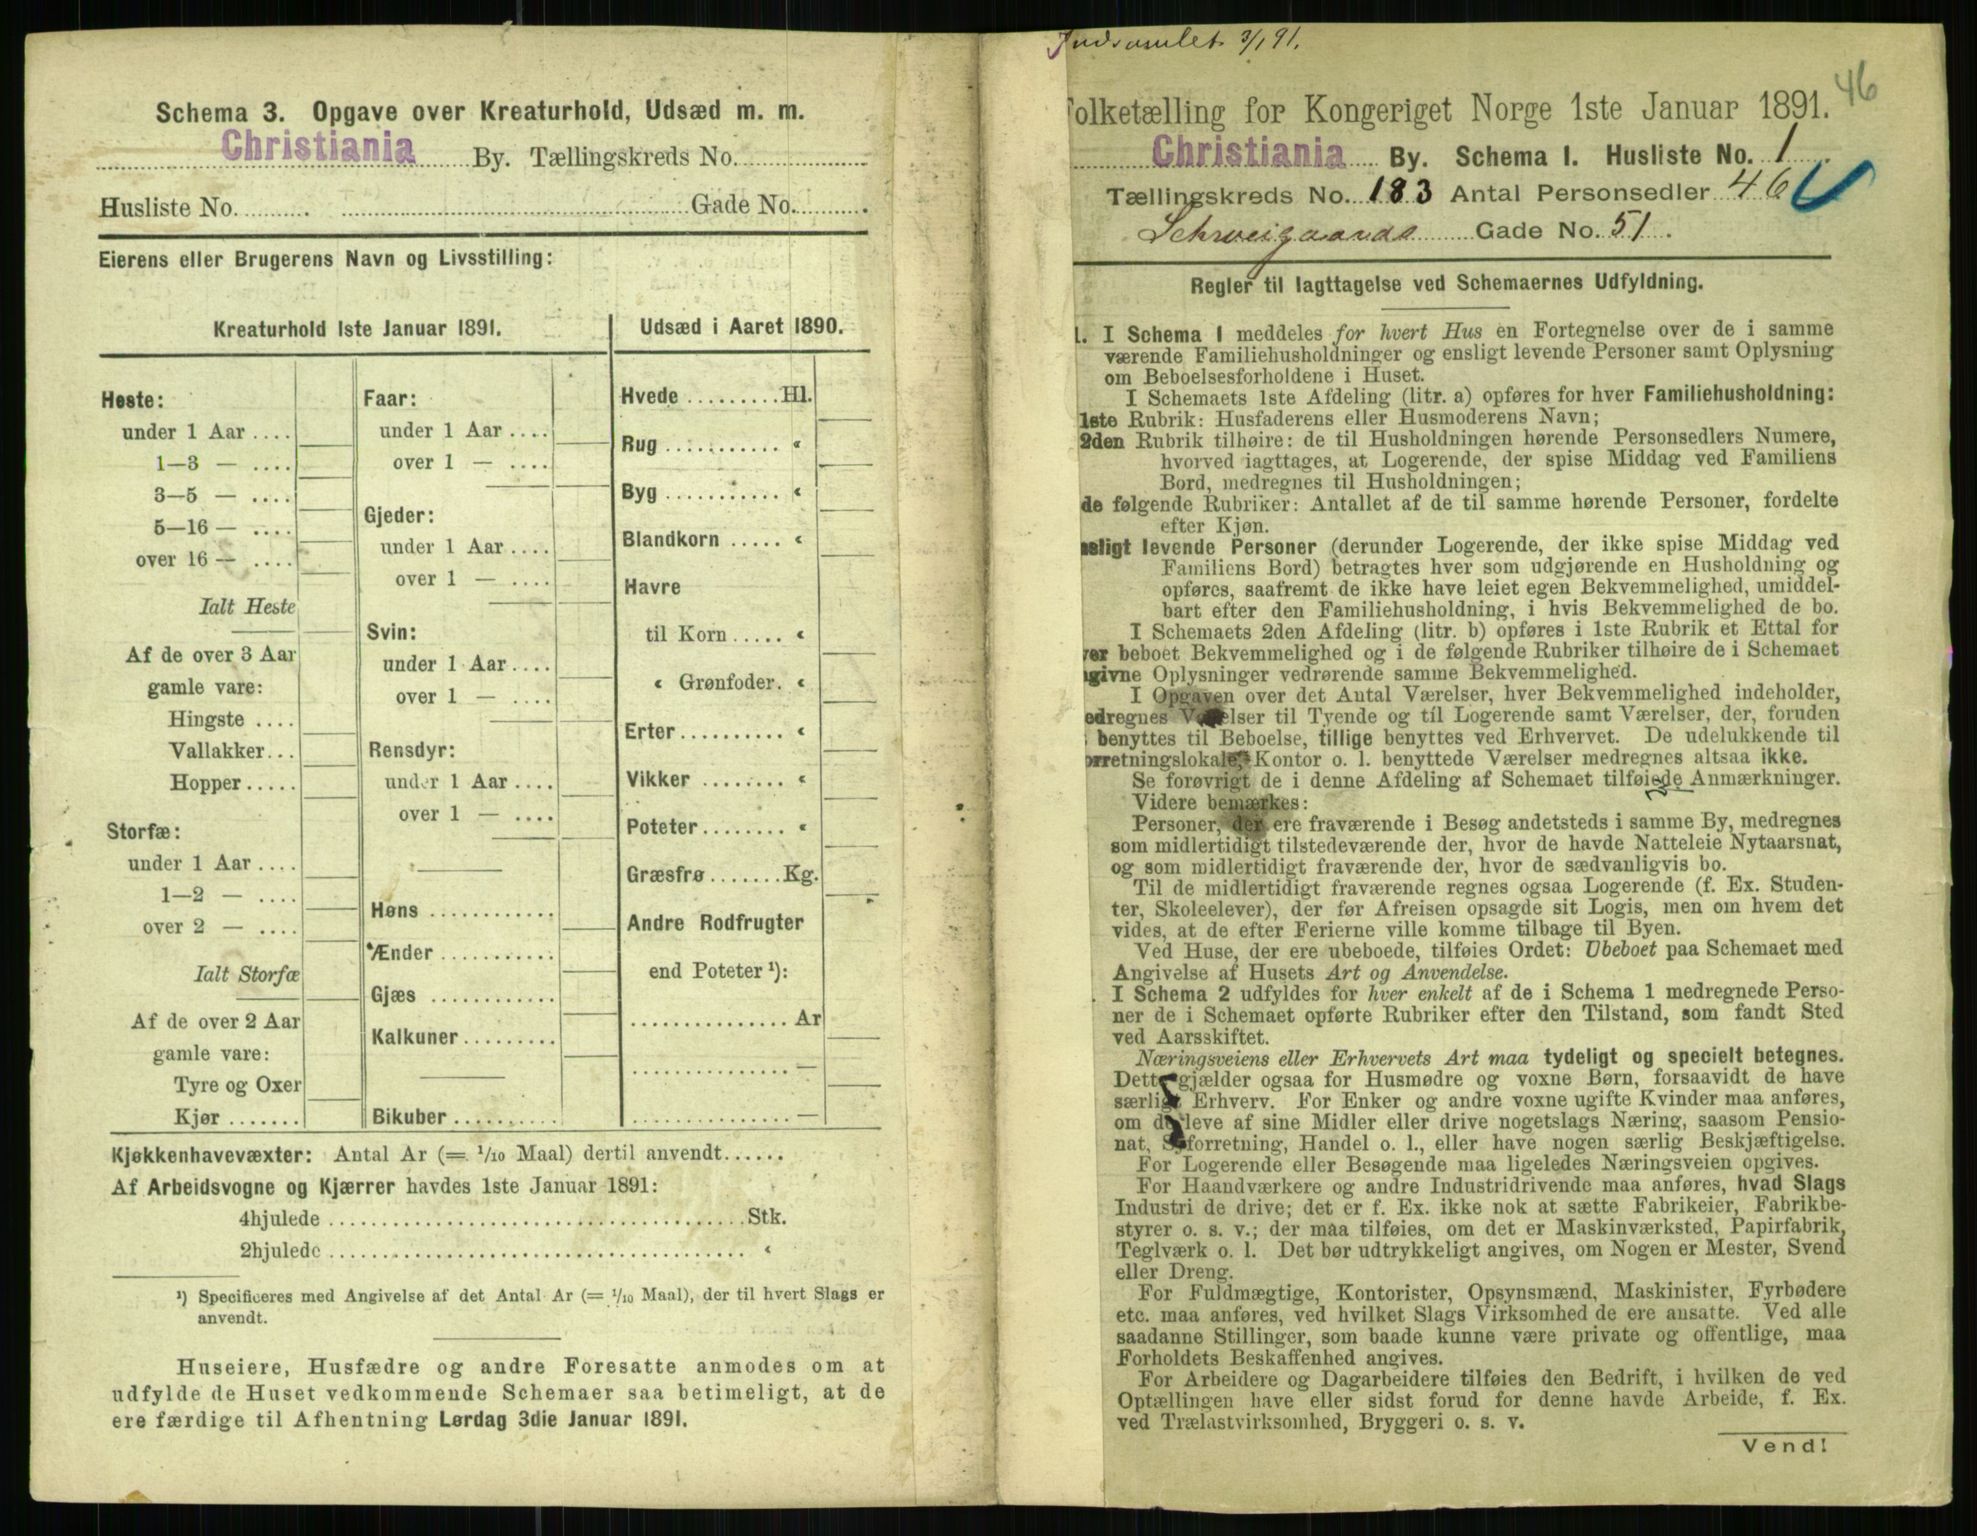 Schema 3. Opgave over Kreaturhold, Udsæd m. m.
Christiania By. Tællingskreds No.
Husliste No. Gade No.
Eierens eller Brugerens Navn og Livsstilling:
Kreaturhold 1ste Januar 1891.
Heste:
under 1 Aar
1—3 —
3—5 —
5—16 —
over 16 —
Ialt Heste
Af de over 3 Aar
gamle vare:
Hingste
Vallakker
Hopper
Storfæ:
under 1 Aar
1—2 —
over 2 —
Ialt Storfæ
Af de over 2 Aar
gamle vare:
Tyre og Oxer
Kjør
Faar:
under 1 Aar
over 1 —
Gjeder:
under 1 Aar
over 1 —
Svin:
under 1 Aar
over 1 —
Rensdyr:
under 1 Aar
over 1 —
Høns
Ænder
Gjæs
Kalkuner
Bikuber
Udsæd i Aaret 1890.
Hvede Hl.
Rug «
Byg «
Blandkorn «
Havre
til Korn «
« Grønfoder «
Erter «
Vikker «
Poteter «
Græsfrø Kg.
Andre Rodfrugter
end Poteter ¹):
Ar
—
—
Kjøkkenhavevæxter: Antal Ar (= 1/10 Maal) dertil anvendt
Af Arbeidsvogne og Kjærrer havdes 1ste Januar 1891:
4hjulede Stk.
2hjulede «
¹) Specificeres med Angivelse af det Antal Ar (= 1/10 Maal), der til hvert Slags er
anvendt.
Huseiere, Husfædre og andre Foresatte anmodes om at
udfylde de Huset vedkommende Schemaer saa betimeligt, at de
ere færdige til Afhentning Lørdag 3die Januar 1891.
Indsamlet 3/1 91.
46
Folketælling for Kongeriget Norge 1ste Januar 1891.
Christiania By. Schema 1. Husliste No. 1
Tællingskreds No. 183 Antal Personsedler 46
Schweigaards Gade No. 51.
Regler til Iagttagelse ved Schemaernes Udfyldning.
1. I Schema 1 meddeles for hvert Hus en Fortegnelse over de i samme
værende Familiehusholdninger og ensligt levende Personer samt Oplysning
om Beboelsesforholdene i Huset.
I Schemaets 1ste Afdeling (litr. a) opføres for hver Familiehusholdning:
1ste Rubrik: Husfaderens eller Husmoderens Navn;
2den Rubrik tilhøire: de til Husholdningen hørende Personsedlers Numere,
hvorved iagttages, at Logerende, der spise Middag ved Familiens
Bord, medregnes til Husholdningen;
de følgende Rubriker: Antallet af de til samme hørende Personer, fordelte
efter Kjøn.
nsligt levende Personer (derunder Logerende, der ikke spise Middag ved
Familiens Bord) betragtes hver som udgjørende en Husholdning og
opføres, saafremt de ikke have leiet egen Bekvemmelighed, umiddel-
bart efter den Familiehusholdning, i hvis Bekvemmelighed de bo.
I Schemaets 2den Afdeling (litr. b) opføres i 1ste Rubrik et Ettal for
ver beboet Bekvemmelighed og i de følgende Rubriker tilhøire de i Schemaet
ngivne Oplysninger vedrørende samme Bekvemmelighed.
I Opgaven over det Antal Værelser, hver Bekvemmelighed indeholder,
edregnes Værelser til Tyende og til Logerende samt Værelser, der, foruden
benyttes til Beboelse, tillige benyttes ved Erhvervet. De udelukkende til
orretningslokale, Kontor o. l. benyttede Værelser medregnes altsaa ikke.
Se forøvrigt de i denne Afdeling af Schemaet tilføiede Anmærkninger.
Videre bemærkes:
Personer, der ere fraværende i Besøg andetsteds i samme By, medregnes
som midlertidigt tilstedeværende der, hvor de havde Natteleie Nytaarsnat,
og som midlertidigt fraværende der, hvor de sædvanligvis bo.
Til de midlertidigt fraværende regnes ogsaa Logerende (f. Ex. Studen-
ter, Skoleelever), der før Afreisen opsagde sit Logis, men om hvem det
vides, at de efter Ferierne ville komme tilbage til Byen.
Ved Huse, der ere ubeboede, tilføies Ordet: Ubeboet paa Schemaet med
Angivelse af Husets Art og Anvendelse.
. I Schema 2 udfyldes for hver enkelt af de i Schema 1 medregnede Perso-
ner de i Schemaet opførte Rubriker efter den Tilstand, som fandt Sted
ved Aarsskiftet.
Næringsveiens eller Erhvervets Art maa tydeligt og specielt betegnes.
Dette gjælder ogsaa for Husmødre og voxne Børn, forsaavidt de have
særligt Erhverv. For Enker og andre voxne ugifte Kvinder maa anføres,
om de leve af sine Midler eller drive nogetslags Næring, saasom Pensio-
nat, Syforretning, Handel o. l., eller have nogen særlig Beskjæftigelse.
For Logerende eller Besøgende maa ligeledes Næringsveien opgives.
For Haandværkere og andre Industridrivende maa anføres, hvad Slags
Industri de drive; det er f. Ex. ikke nok at sætte Fabrikeier, Fabrikbe-
styrer o. s. v.; der maa tilføies, om det er Maskinværksted, Papirfabrik,
Teglværk o. l. Det bør udtrykkeligt angives, om Nogen er Mester, Svend
eller Dreng.
For Fuldmægtige, Kontorister, Opsynsmænd, Maskinister, Fyrbødere
etc. maa anføres, ved hvilket Slags Virksomhed de ere ansatte. Ved alle
saadanne Stillinger, som baade kunne være private og offentlige, maa
Forholdets Beskaffenhed angives.
For Arbeidere og Dagarbeidere tilføies den Bedrift, i hvilken de ved
Optællingen have eller sidst forud for denne havde Arbeide, f. Ex.
ved Trælastvirksomhed, Bryggeri o. s. v.
Vend!